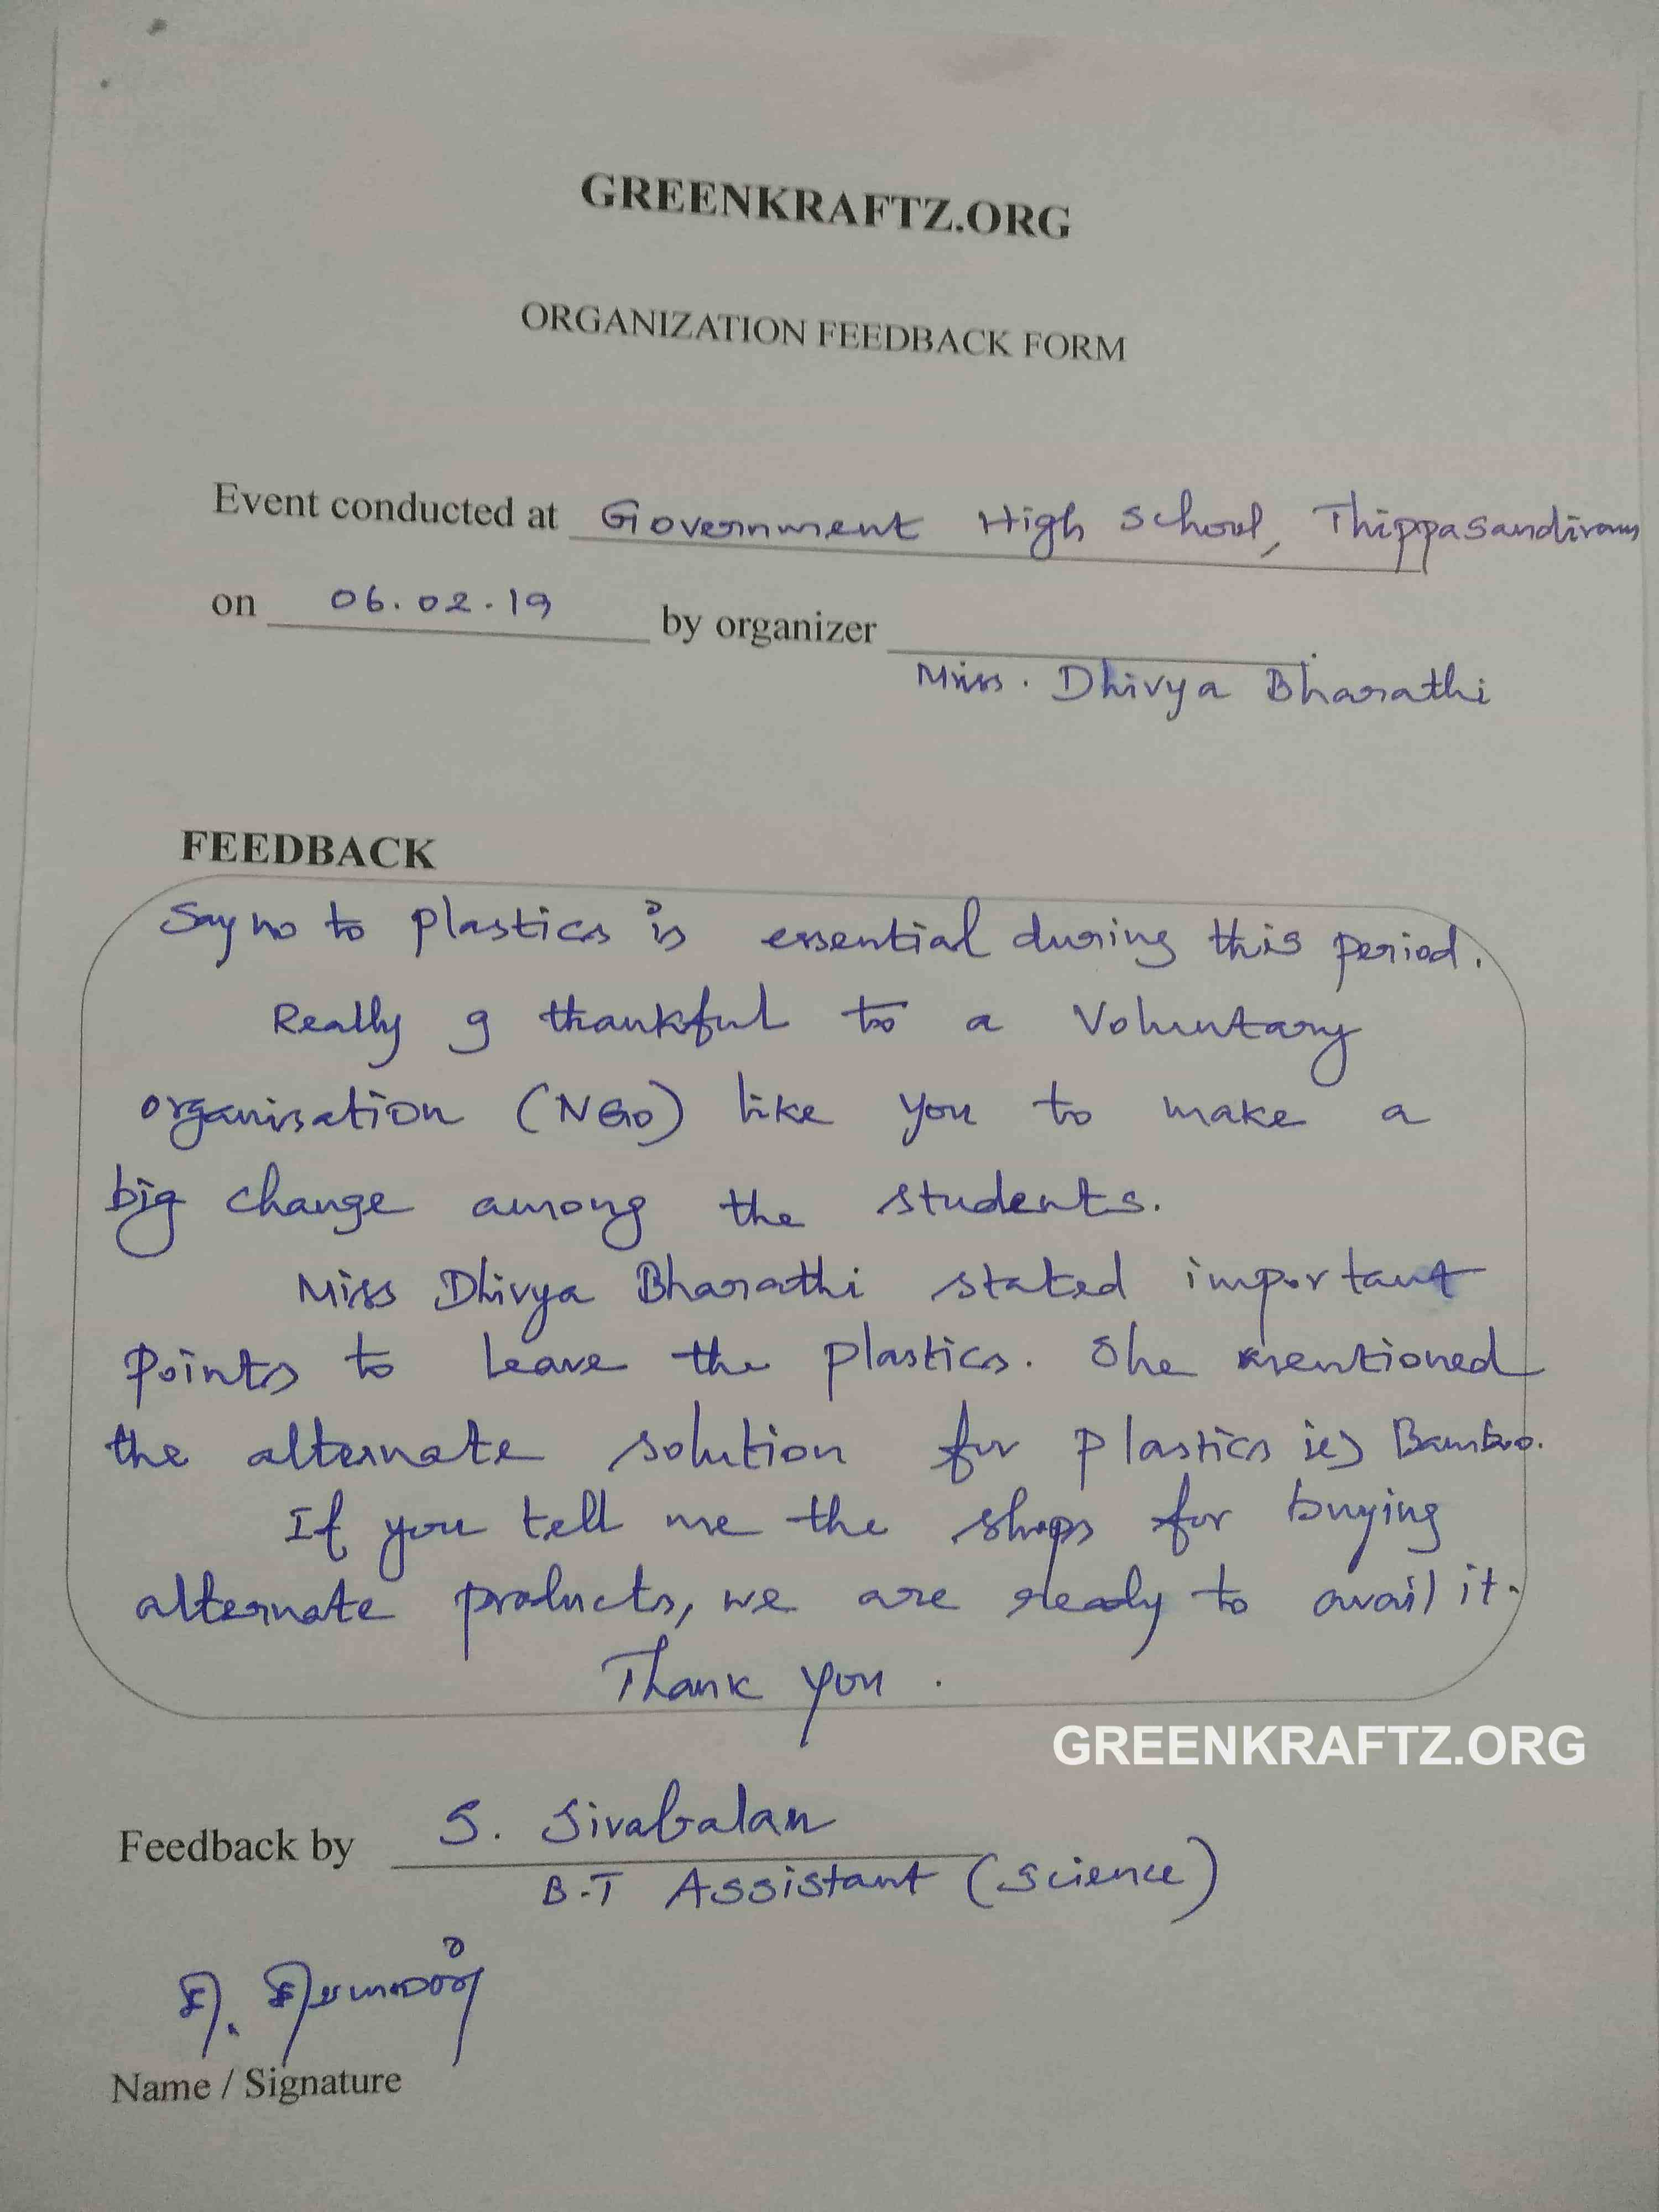 GREENKRAFTZ.ORG
ORGANIZATION FEEDBACK FORM
Event conducted at Government High School, Thippasandiram
on 06.02.19 by organizer
Miss. Dhivya Bharathi
FEEDBACK
Say no to plastics is essential during this period.
Really I thankful to a Voluntary
organisation (NGO) like you to make a
big change among the students.
Miss Dhivya Bharathi stated important
points to leave the plastics. She mentioned
the alternate solution for plastics ie) Bamboo.
If you tell me the shops for buying
alternate products, we are ready to avail it.
Thank you.
GREENKRAFTZ.ORG
Feedback by S. Sivabalan
B.T Assistant (Science)
Name / Signature